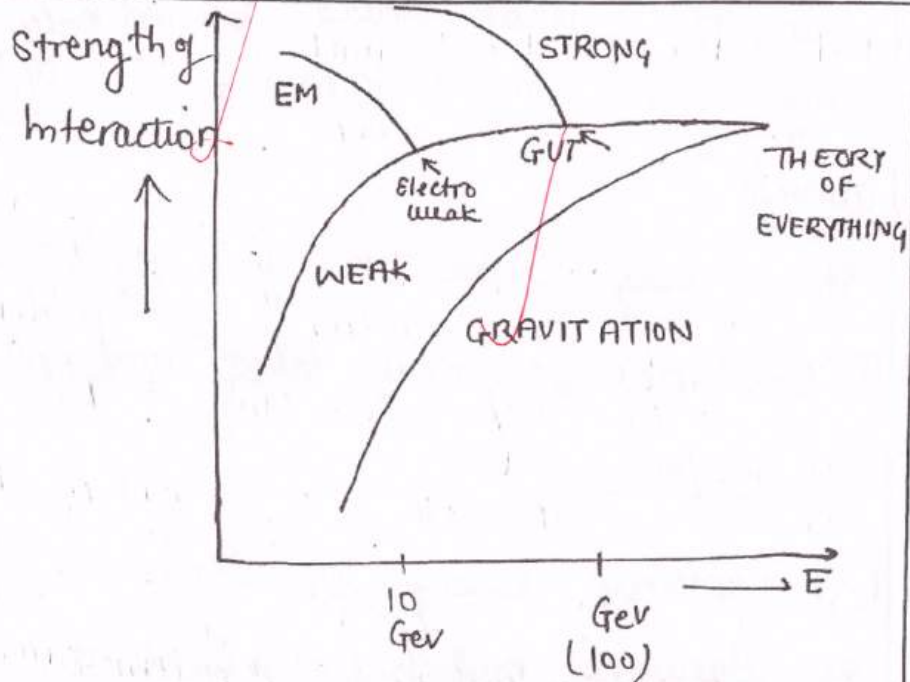 Strength of
Interaction
STRONG
EM
GUT
Electro
weak
THEORY
OF
EVERYTHING
WEAK
GRAVITATION
E
10
Gev
Gev
(100)